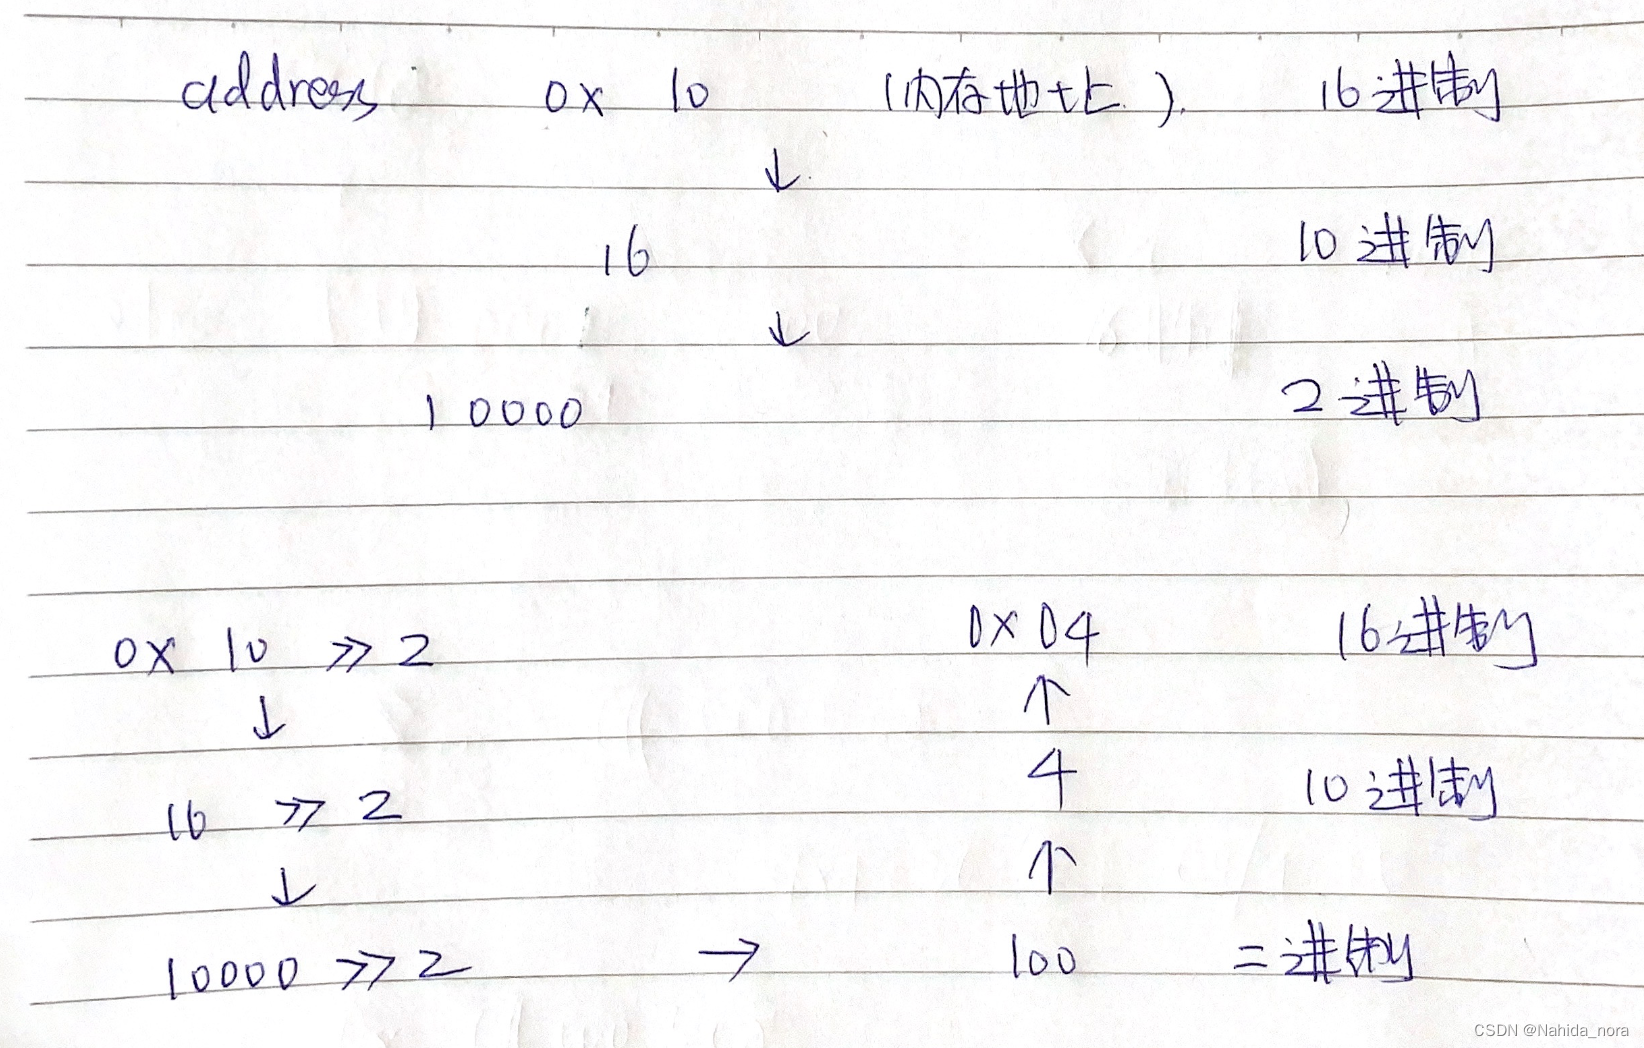 address 0x 10 (内存地址) 16进制
↓
16 10进制
↓
10000 2进制
0x 10 >> 2 0x04 16进制
↓ ↑
16 >> 2 4 10进制
↓ ↑
10000 >> 2 → 100 二进制
CSDN @Nahida_nora